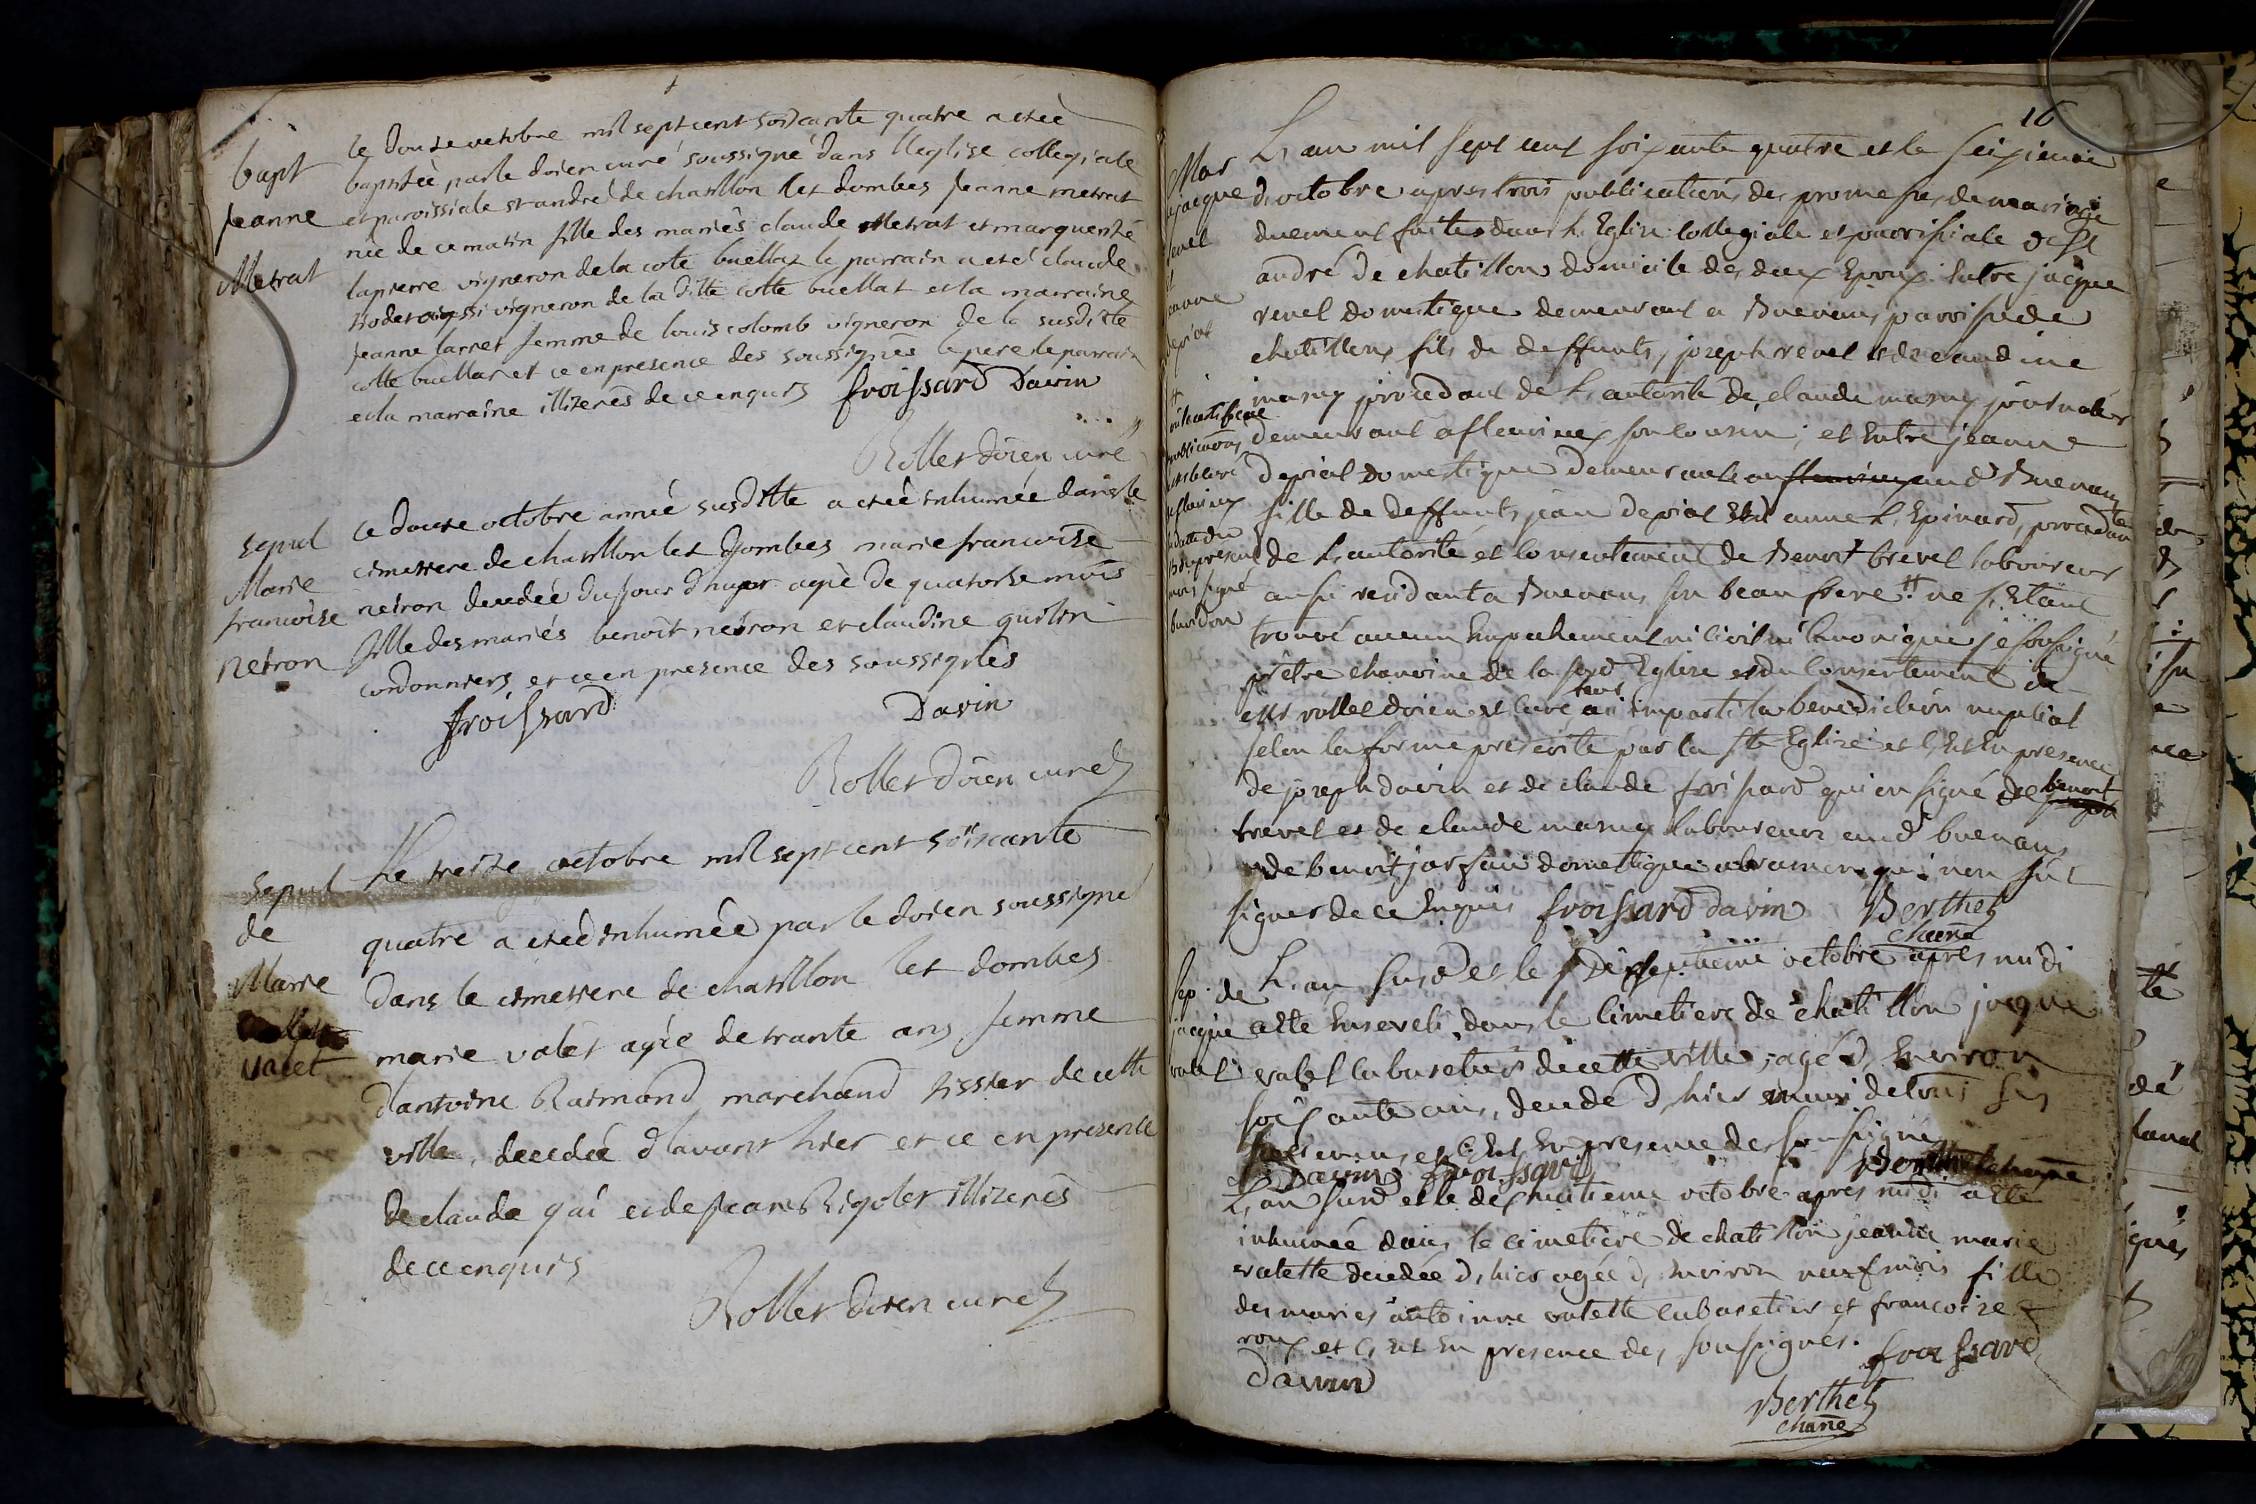 bapt
Jeanne
Metrat
le douze octobre mil sept cent soixante quatre a etèe
baptisèe par le doien curé soussigné dans l'eglise collegiale
et paroissiale st andré de chatillon les dombes jeanne metrat
née de ce matin fille des mariés claude Metrat et marguerite
lapierre vigneron de la cote buellat le parrain a eté claude
aussi vigneron de la ditte cotte buellat et la marraine
jeanne larret femme de louis colomb vigneron de la susditte
cotte buellat et ce en presence des soussignés le pere le parrain
et la marraine illizerés de ce enquis froissard Davin
Rollet doien curé
sepul
Marie
francoise
neiron
Ce douze octobre année susditte a etèe inhumée dans le
cimetiere de chatillon les Dombes marie francoise
neiron decedée du jour d'huyer agèe de quatorse mois
fille des mariés benoit neiron et claudine
cordonniers et ce en presence des soussignés
froissard Davin
Rollet doien curé
Sepul
de
Marie
valet
Le treize octobre mil sept cent soixante
quatre a etèe inhumèe par le doien soussigné
dans le cimetiere de chatillon les dombes
marie valet agèe de trante ans femme
d'antoine Raimond marchand tissier de cette
ville, decedée d'avant hier et ce en presence
de claude gai et de jean Rigolet illizerés
de ce enquis
Rollet doien curé
16
Mar
jacque
revel
et
jeanne
depial
L'an mil sept cent soixante quatre et le seizieme
d'octobre apres trois publications des promesses de mariage
duement faites dans L'Eglise collegiale et parroissiale de St
andré de chatillon domicile des deux Epoux Entre jacque
revel domestique demeurant a Buenans parroisse de
chatillon fils de deffunts joseph revel et de claudine
marey procedant de L'autorité de claude marey journalier
demeurant a fleurieux son cousin; et Entre jeanne
depial domestique demeurante au fleurieux aud Buenans
fille de deffunts jean depial et d'anne L'Epinard, procedante
de L'autorité et consentement de Benoit trevel laboureur
aussi residant a Buenans son beau frere ne s'Etant
trouvé aucun Empechement ni civil ni canonique je soussigné
prêtre chanoine de la susd Eglise et du consentement de
Mr rollet doien et curé leur ai imparti la benediction nuptial
selon la forme prescrite par la Ste Eglise et C'Est En presence
de joseph davin et de claude froissard qui on signé de benoit
trevel et de claude marey laboureur aud buenans
de benoit domestique qui non sut
signer de ce Enquis froissard davin Berthet
chane
sep. de
jacque
valet
L'an susd et le dixseptieme octobre apres midi
a ette Enseveli dans le Cimetiere de chatillon jacque
valet cabaretier de cette ville, agé d'Environ
soixante ans, decedé d'hier muni de tous ses
sacremens et C'Est En presence des soussignés
Davin froissard Berthet chane
L'an susd et le dixhuitieme octobre apres midi a ette
inhumée dans le cimetiere de chatillon jeanne marie
valette decedée d'hier agée d'Environ neuf mois fille
des mariés antoinne valette cabaretier et francoise
roux et C'Est En presence des soussignés. froissard
davin
Berthet
chane